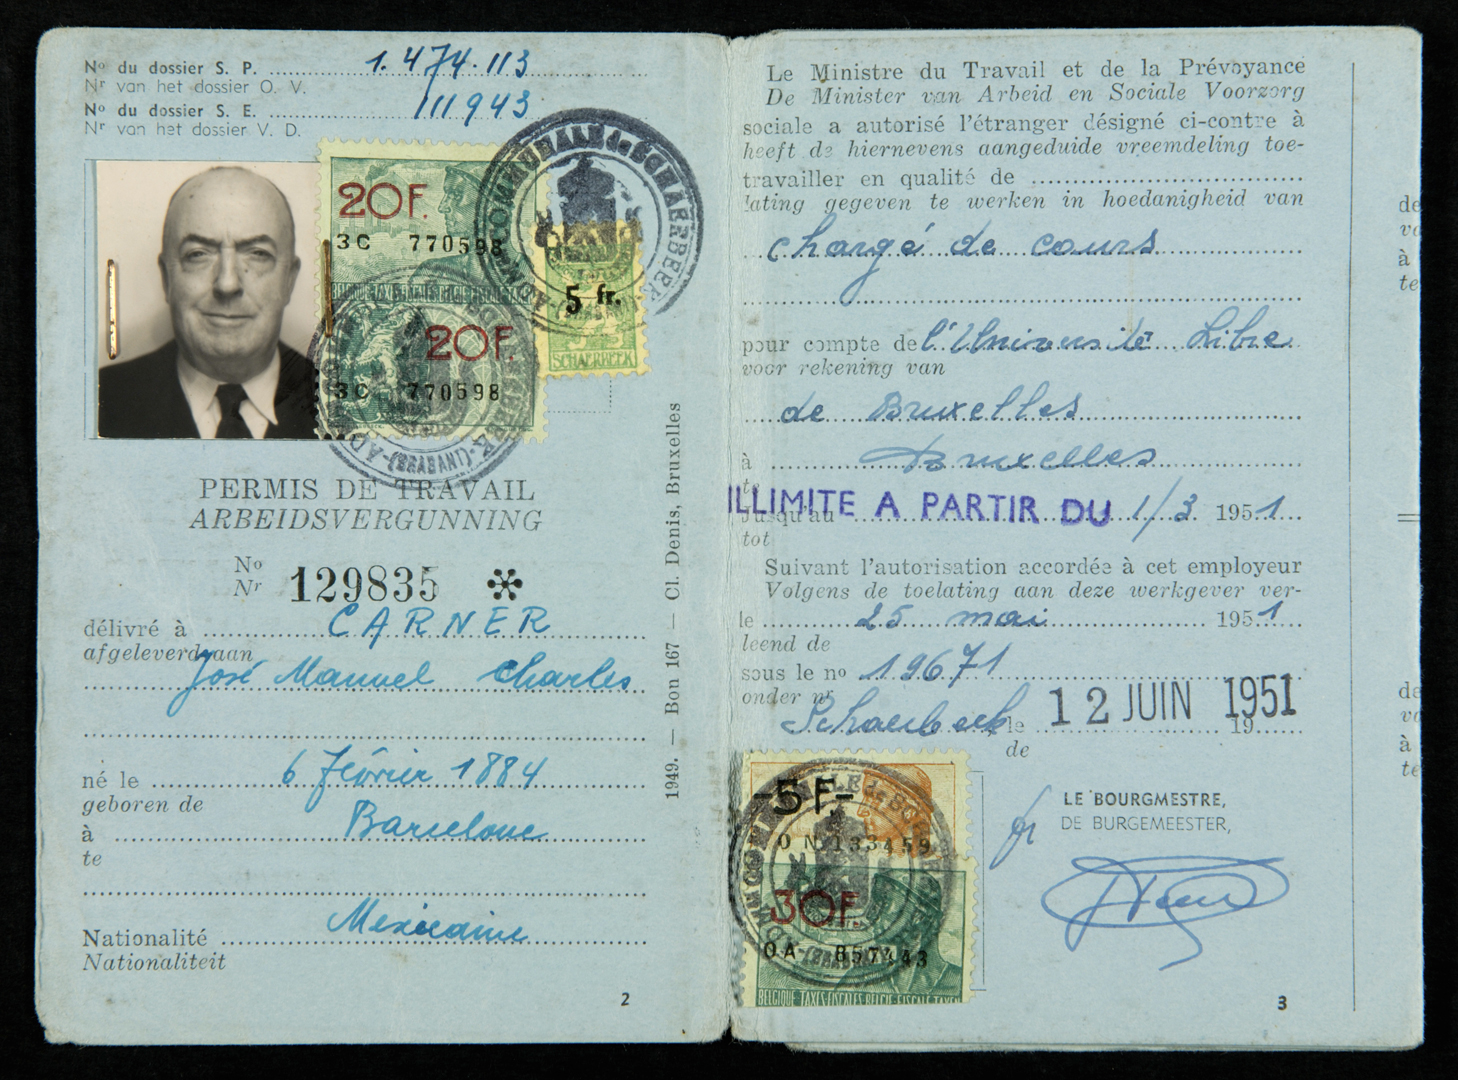 No du dossier S. P. 1.474.113
Nr van het dossier O. V.
No du dossier S. E. 111943
Nr van het dossier V. D.
20F.
3C 770598
BELGIQUE TAXES FISCALES BELGIE FISCALE TAXEN
20F.
3C 770598
ADM COMMUNALE de SCHAERBEEK
5 fr.
SCHAERBEEK
-(BRABANT)-
PERMIS DE TRAVAIL
ARBEIDSVERGUNNING
No
Nr 129835 *
délivré à CARNER
afgeleverd aan
José Manuel Charles
né le 6 février 1884
geboren de
à Barcelone
te
Nationalité Mexicaine
Nationaliteit
2
1949. — Bon 167 — Cl. Denis, Bruxelles
Le Ministre du Travail et de la Prévoyance
De Minister van Arbeid en Sociale Voorzorg
sociale a autorisé l'étranger désigné ci-contre à
heeft de hiernevens aangeduide vreemdeling toe-
travailler en qualité de
lating gegeven te werken in hoedanigheid van
chargé de cours
pour compte de l'Université Libre
voor rekening van
de Bruxelles
à Bruxelles
te
ILLIMITE A PARTIR DU
Jusqu'au 1/3 1951
tot
Suivant l'autorisation accordée à cet employeur
Volgens de toelating aan deze werkgever ver-
le 25 mai 1951
leend de
sous le no 19671
onder nr
Schaerbeek le 12 JUIN 1951
19
de
-5F-
O N 133459
30F
OA 857443
BELGIQUE TAXES FISCALES BELGIE FISCALE TAXEN
LE BOURGMESTRE,
DE BURGEMEESTER,
3
de
à
te
de
à
te